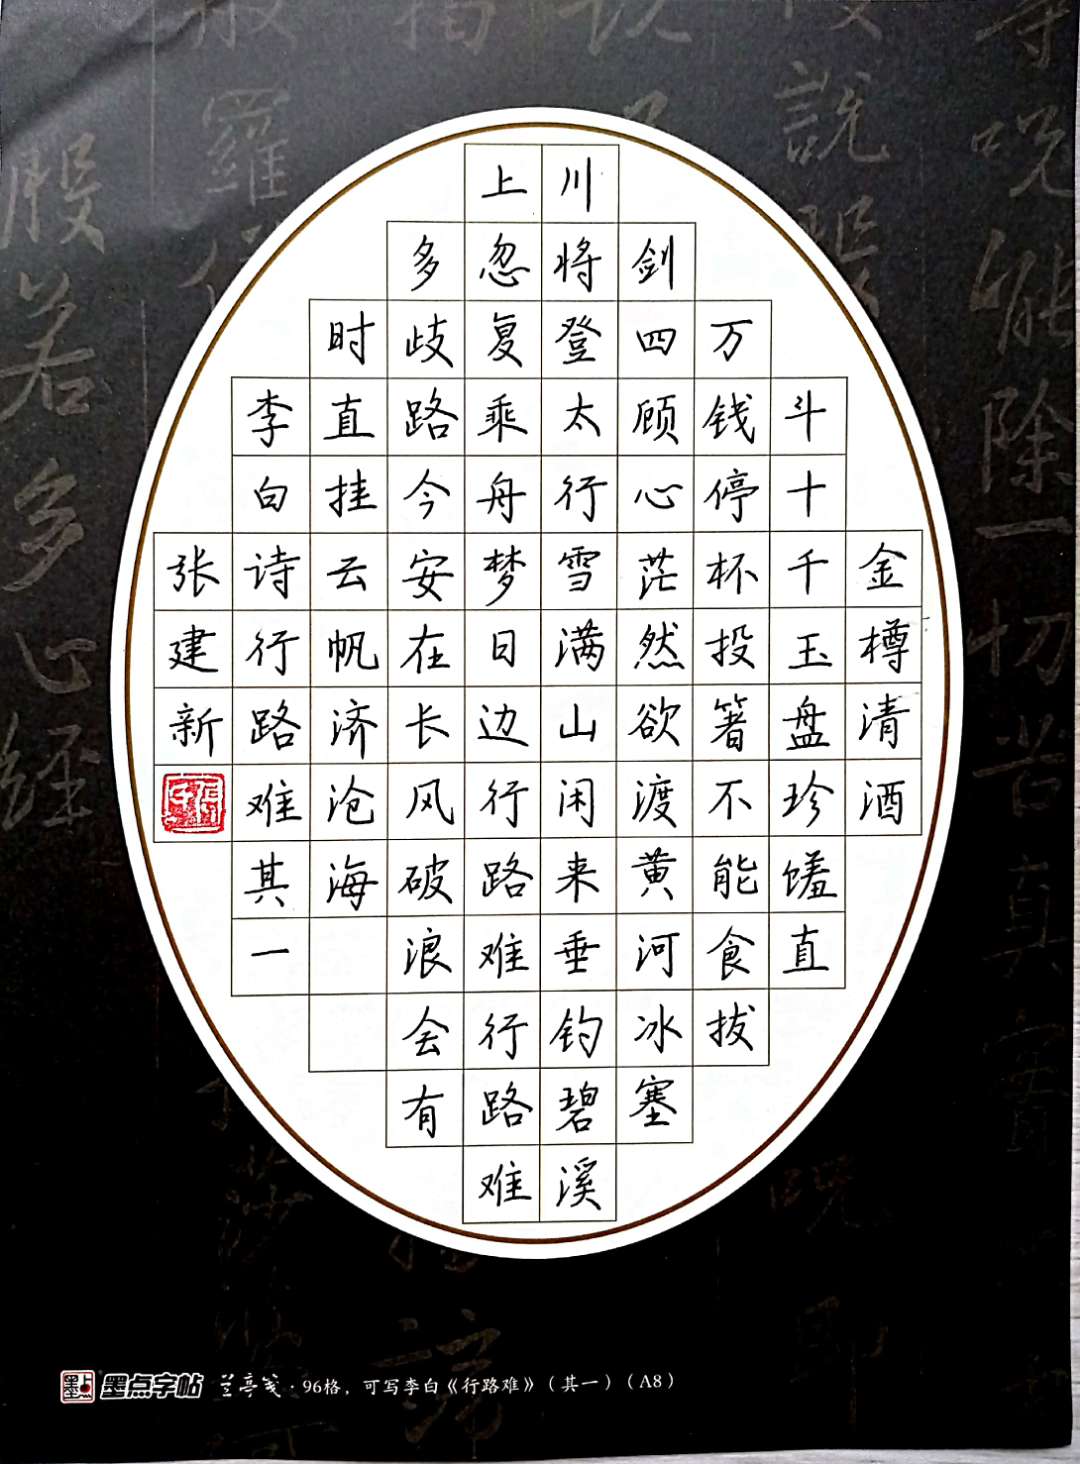 等呪能除一切苦真實
金樽清酒
斗十千玉盘珍馐直
万钱停杯投箸不能食拔
剑四顾心茫然欲渡黄河冰塞
川将登太行雪满山闲来垂钓碧溪
上忽复乘舟梦日边行路难行路难
多歧路今安在长风破浪会有
时直挂云帆济沧海
李白诗行路难其一
张建新
般若多心经
墨点字帖 兰亭笺·96格，可写李白《行路难》（其一）（A8）